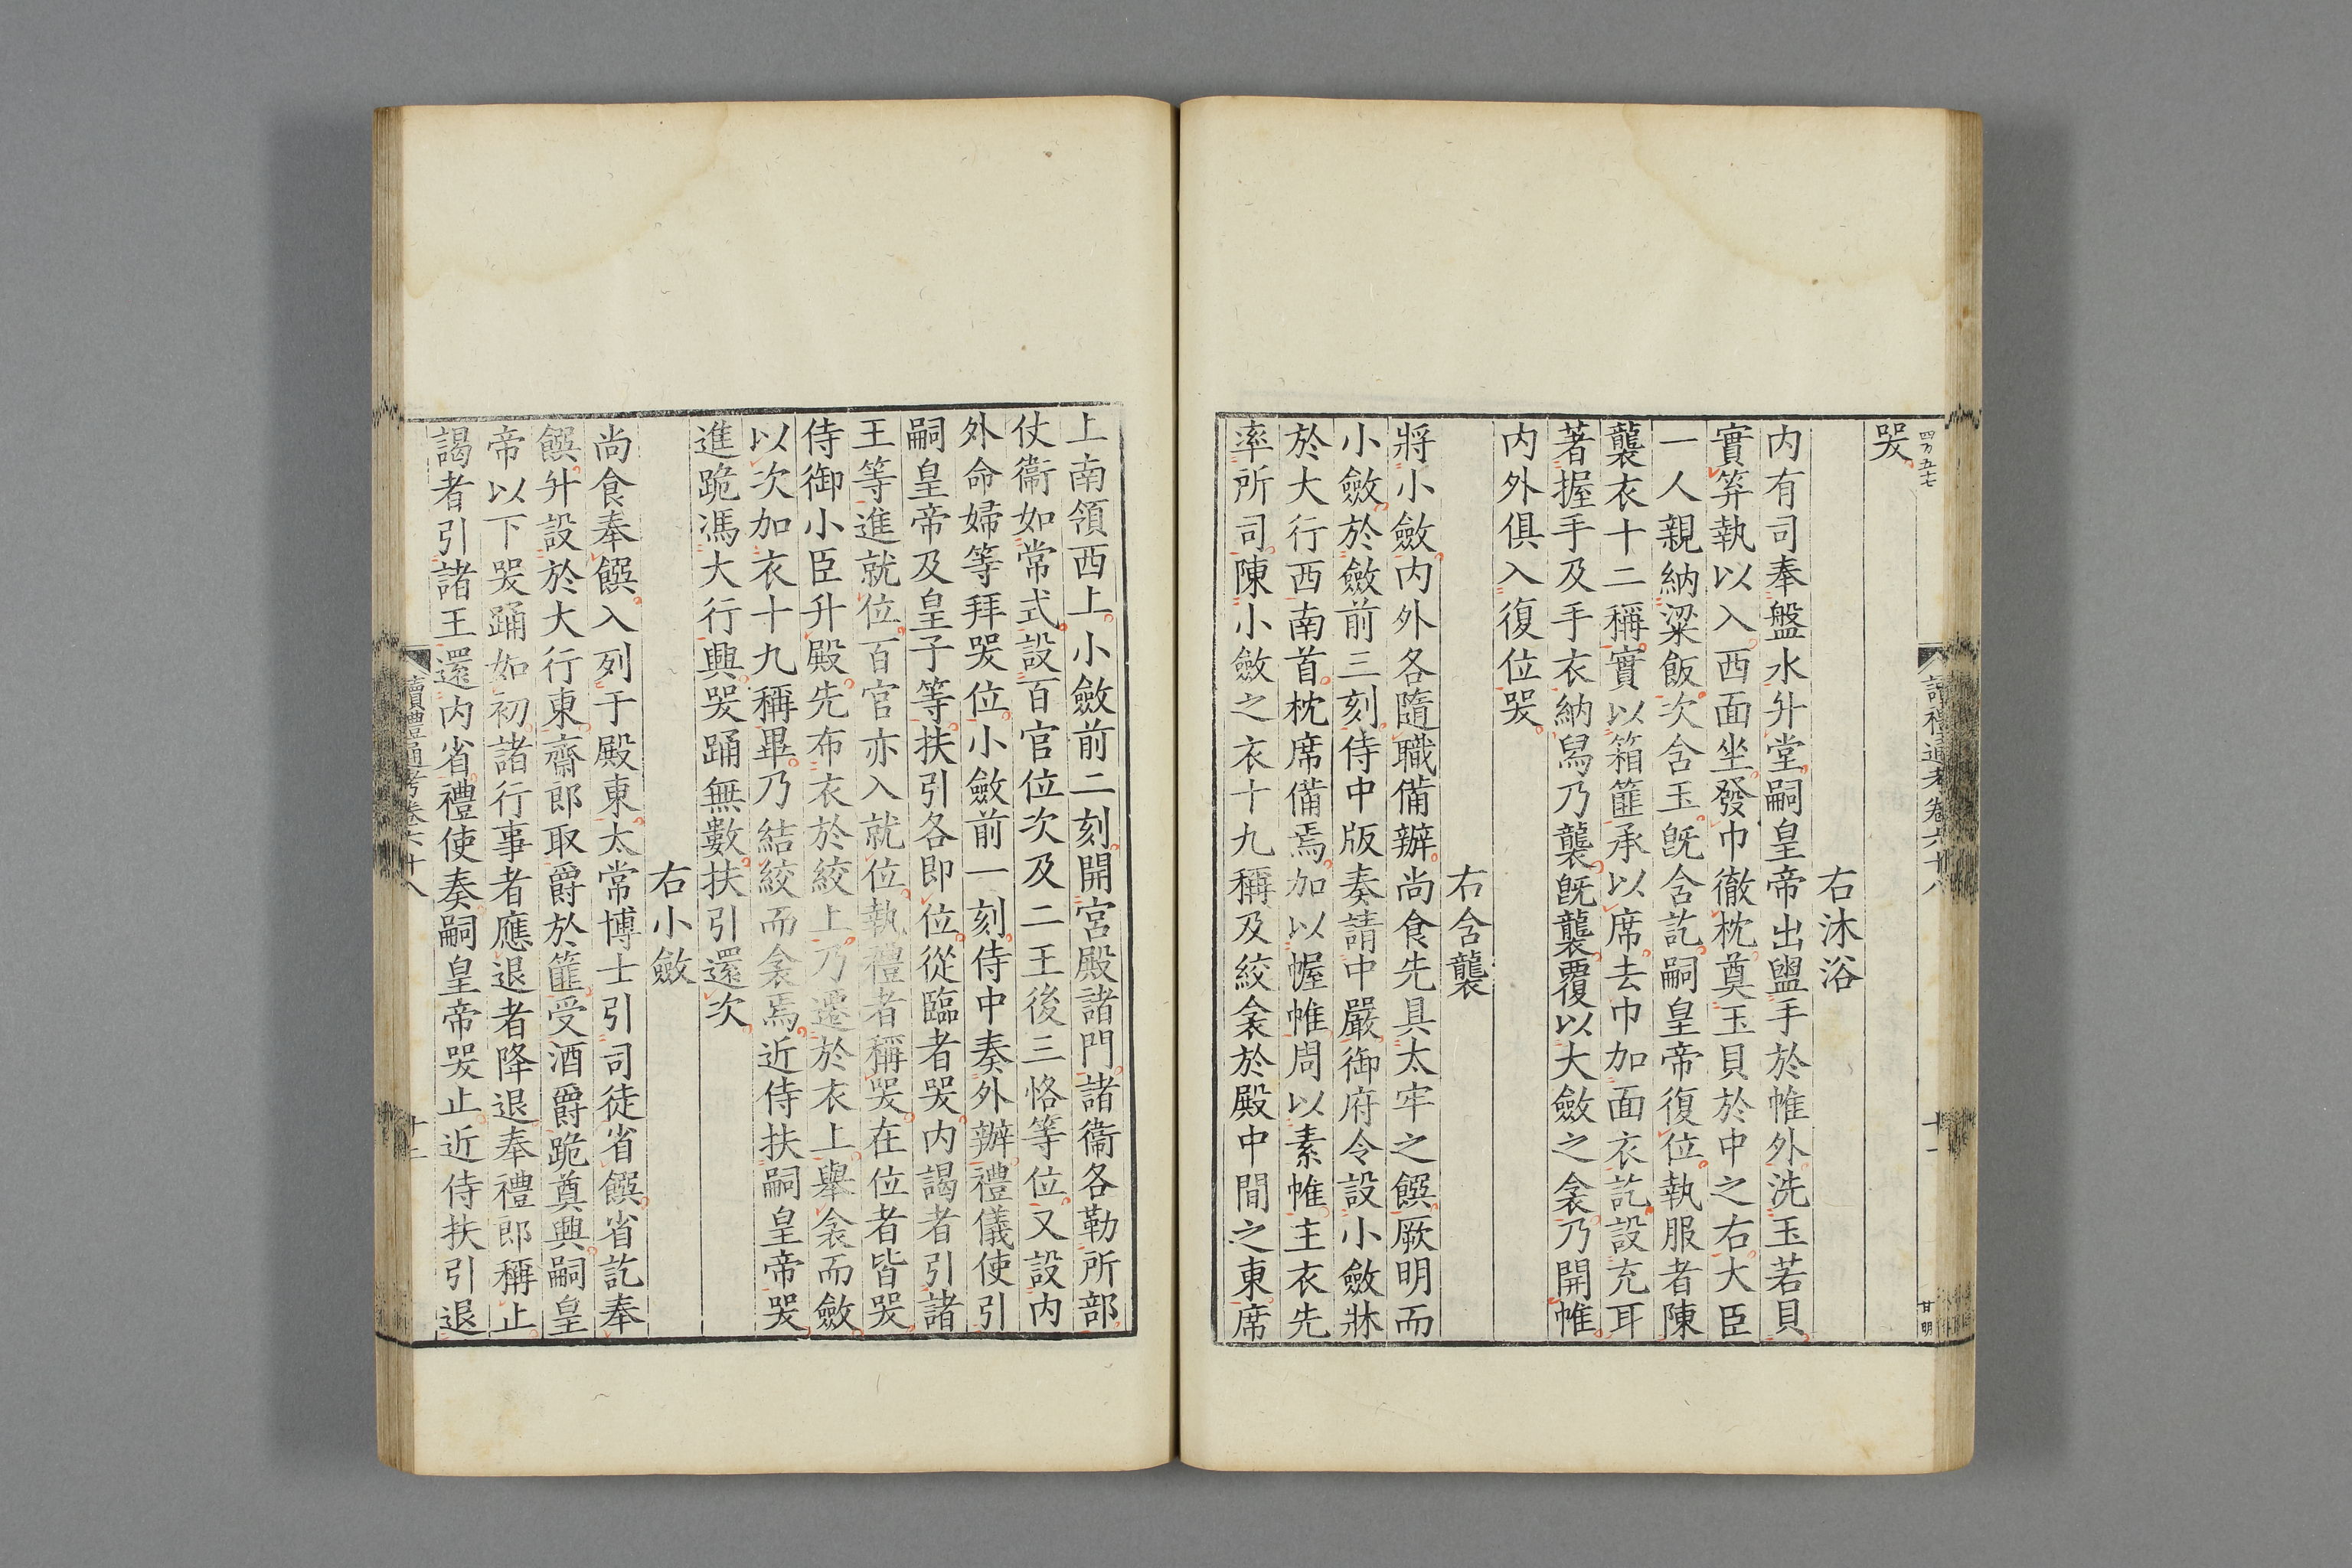 四万五七
讀禮通考卷六十八
十一
甘明
哭
右沐浴
内有司奉盤水升堂嗣皇帝出盥手於帷外洗玉若貝
實笲執以入西面坐發巾徹枕奠玉貝於中之右大臣
一人親納粱飯次含玉旣含訖嗣皇帝復位執服者陳
襲衣十二稱實以箱篚承以席去巾加面衣訖設充耳
著握手及手衣納舄乃襲旣襲覆以大斂之衾乃開帷
内外俱入復位哭
右含襲
將小斂内外各隨職備辦尚食先具太牢之饌厥明而
小斂於斂前三刻侍中版奏請中嚴御府令設小斂牀
於大行西南首枕席備焉加以幄帷周以素帷主衣先
率所司陳小斂之衣十九稱及絞衾於殿中間之東席
上南領西上小斂前二刻開宮殿諸門諸衞各勒所部
仗衞如常式設百官位次及二王後三恪等位又設内
外命婦等拜哭位小斂前一刻侍中奏外辦禮儀使引
嗣皇帝及皇子等扶引各即位從臨者哭内謁者引諸
王等進就位百官亦入就位執禮者稱哭在位者皆哭
侍御小臣升殿先布衣於絞上乃遷於衣上舉衾而斂
以次加衣十九稱畢乃結絞而衾焉近侍扶嗣皇帝哭
進跪馮大行興哭踊無數扶引還次
右小斂
尚食奉饌入列于殿東太常博士引司徒省饌省訖奉
饌升設於大行東齋郎取爵於篚受酒爵跪奠興嗣皇
帝以下哭踊如初諸行事者應退者降退奉禮郎稱止
謁者引諸王還内省禮使奏嗣皇帝哭止近侍扶引退
讀禮通考卷六十八
十二